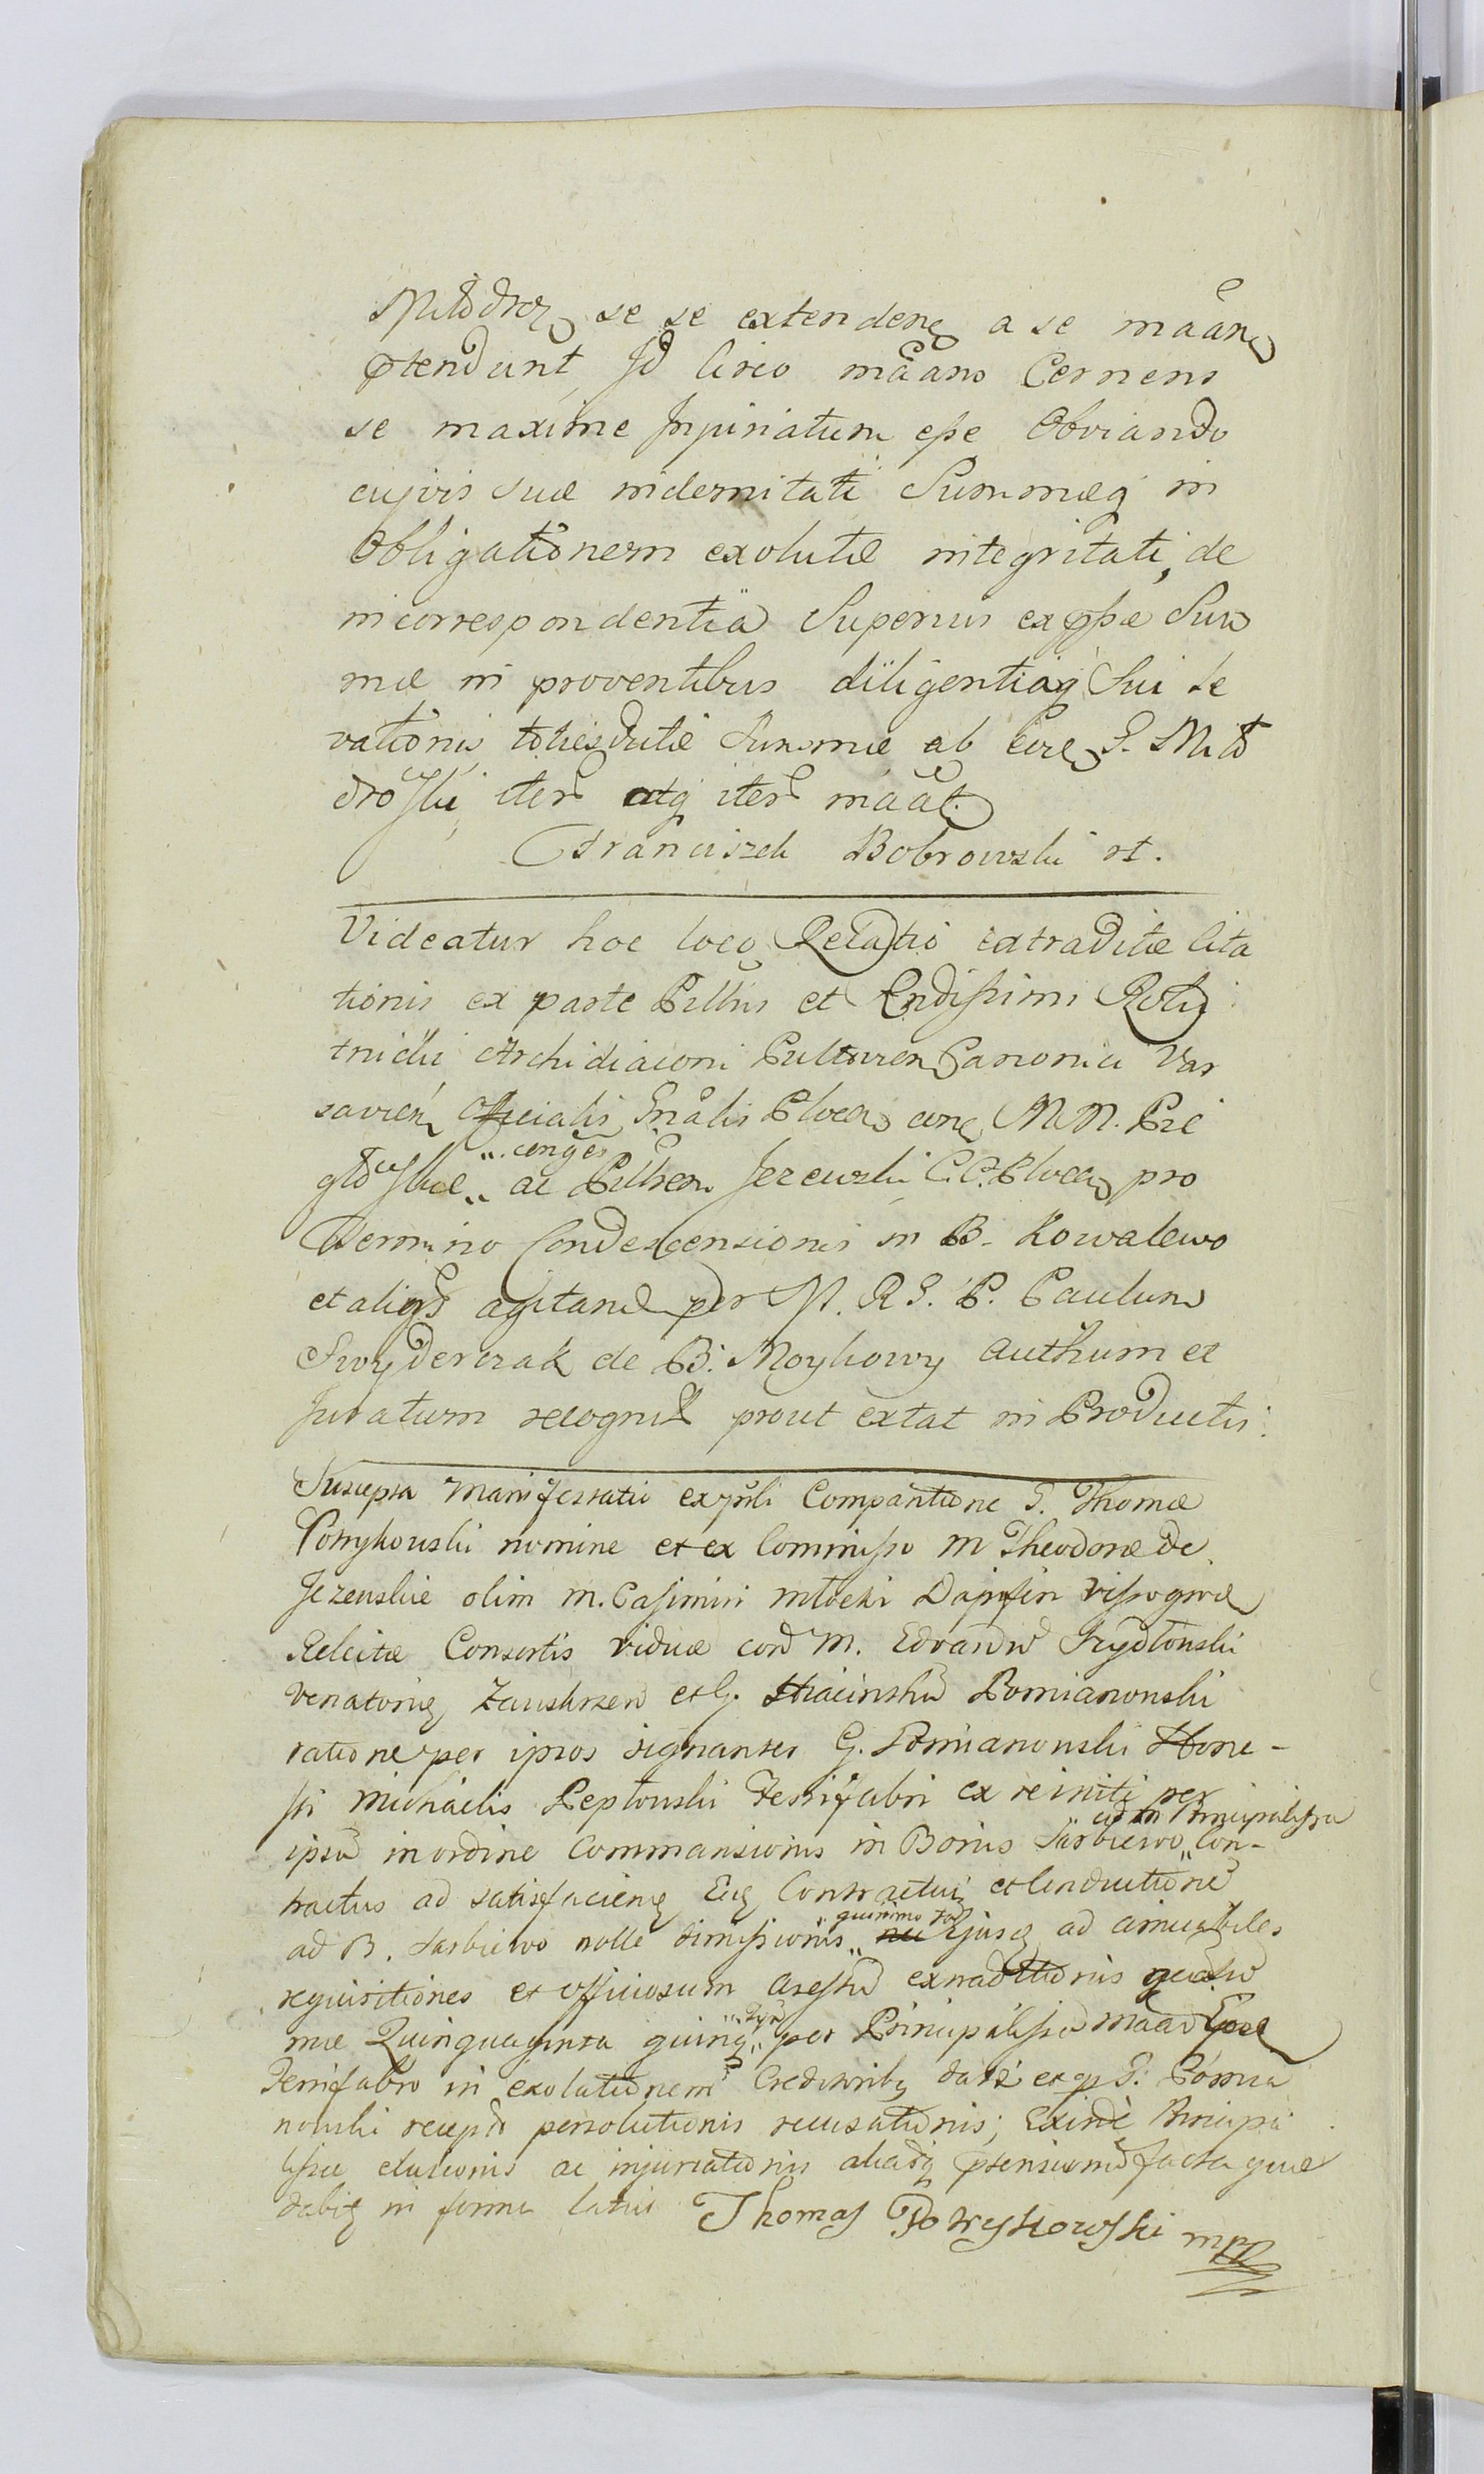 se se extenden a se maan
ptendunt Id circo maans Cernens
se maxime Injuriatum esse Obviando
cujvis suæ indemnitati Summæq in
Obligationem exolutæ integritati, de
incorrespondentia Superius exppsæ Sum
mæ in proventibus diligentiaq Sui le
vationis totiesdictæ Summæ ab eod G. Mło
droscki iter atq iter maat.
Franciszek Bobrowski st.
Videatur hoc loco Relatio extraditæ Cita
tionis ex parte Pllris et Rndissimi Rotu
tnicki Archidiaconi Pultoven Canonici Var
savien Officialis Gnalis Plocen con M.M. Prz
conges
ac Pllrem Jezewski C.C. Plocen pro
Termino Condescensionis in B. Kowalewo
et aliqs agitand per M. R G. P. Paulum
Swyderczak de B. Moykowy authum et
Juratum recognit prout extat in Productis.
Suscepta Manifestatio ex psnli Compantione G. Thomæ
Potrykouski nomine et ex Commisso M Theodoræ de
Jezeuskie olim M. Casimiri Młocki Dapiferi Vissogrod
Relictæ Consortis viduæ cord M. Edvardū Frydlouski
Venatorie Zauskrzen et G. Hiacinthū Pomianouski
ratione per ipsos signanter G. Pomianouski Hone-
sti Michaelis Reptouski Ferrifabri ex re initi per
cum Principalissa
ipsū in ordine Commansionis in Bonis Sarbiewo Con-
tractus ad satisfaciend Eid Contractui et Conductione
quinimo
ad B. Sarbiewo nolle dimissionis ejusq ad amicabiles
requisitiones et officiosum Arestū extraditionis
mæ Quinquaginta quinq per Principalissā maan
Ferrifabro in exolutionem Creditoribq datæ ex G. Pomia
nouski receptæ persolutionis recusationis; Exinde Principa
lissæ elusionis ac injuriationis aliarq ptensionū facta quæ
dabit in forma latius Thomas Potrykowski mpp